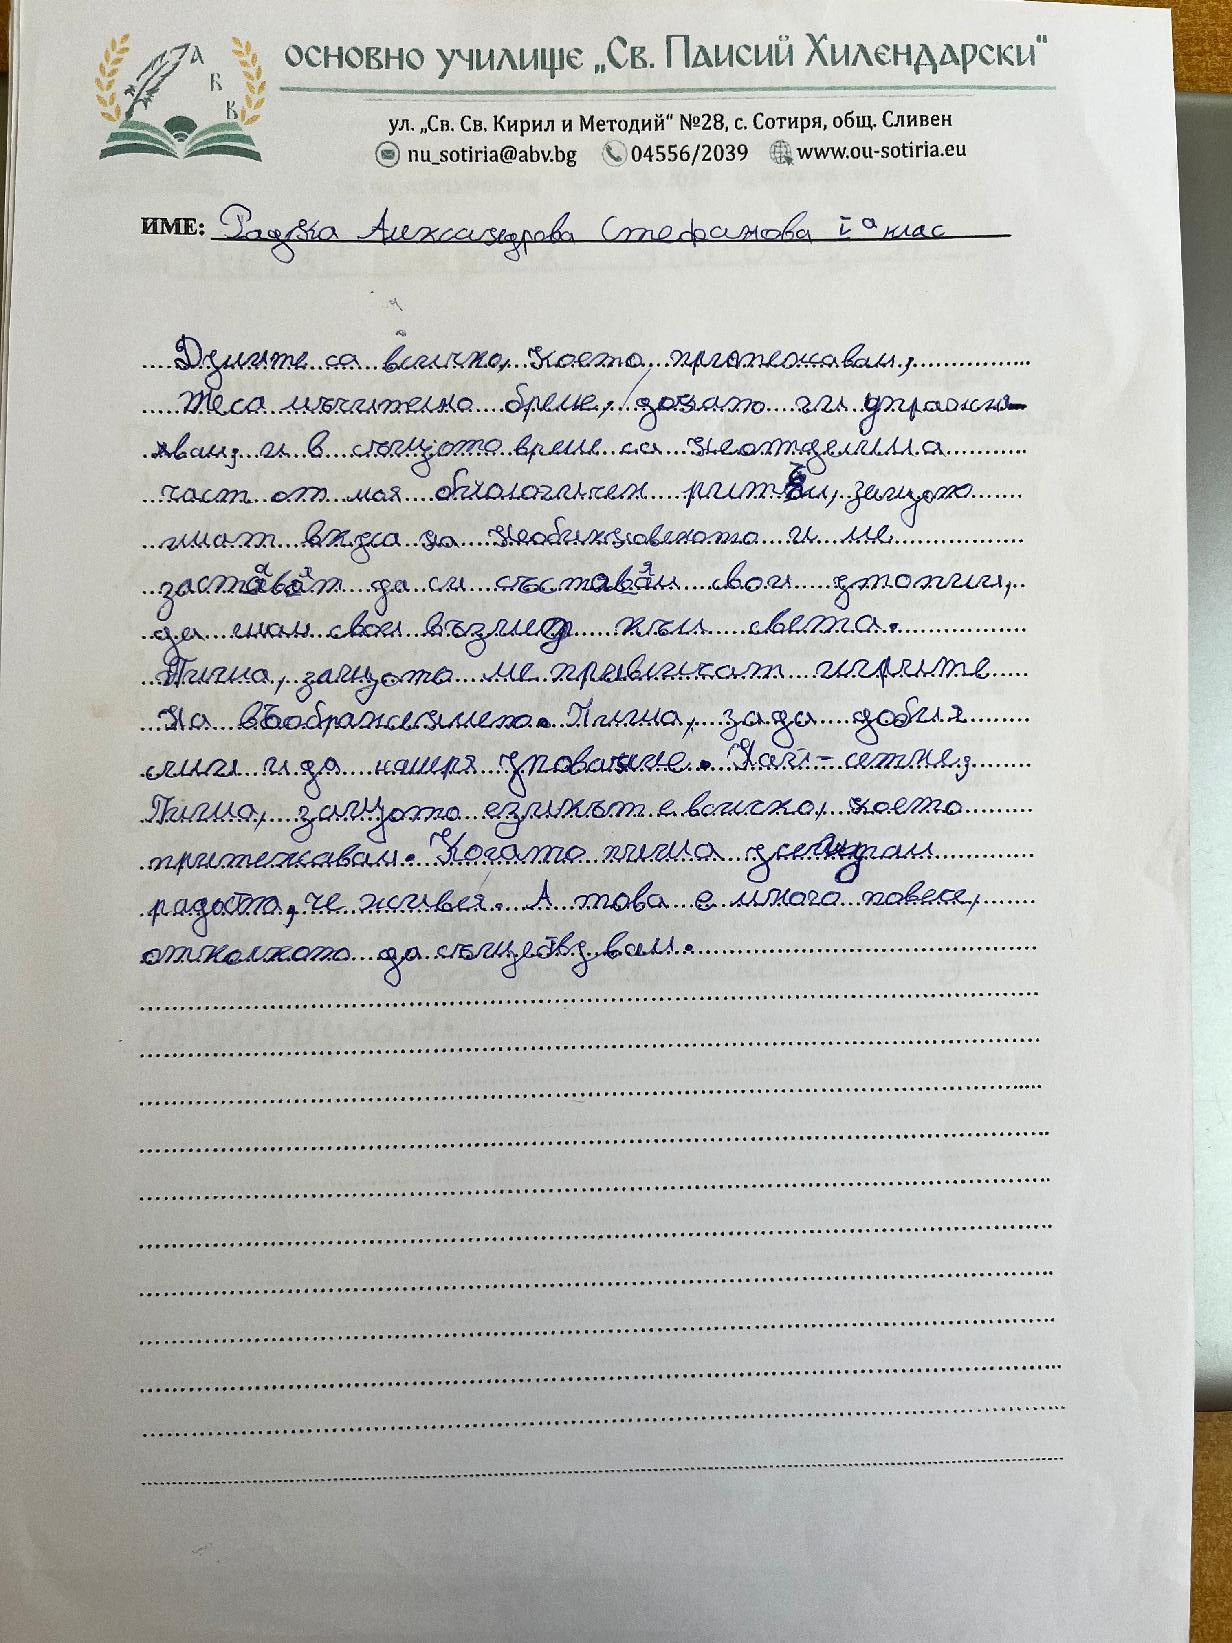 А
Б
В
ОСНОВНО УЧИЛИЩЕ „СВ. ПАИСИЙ ХИЛЕНДАРСКИ“
ул. „Св. Св. Кирил и Методий“ №28, с. Сотиря, общ. Сливен
nu_sotiria@abv.bg 04556/2039 www.ou-sotiria.eu
ИМЕ: Радка Александрова Стефанова Iа клас
Думите са всичко, което притежавам,
те са мъчително бреме, докато ги упражня-
вам, и в същото време са неотделима
част от моя биологичен ритъм, защото
имат вкуса на необикновеното и ме
заставят да си съставям свои утопии,
да имам свой възглед към света.
Пиша, защото ме привличат игрите
на въображението. Пиша, за да добия
сили и да намеря упование. Най-сетне,
Пиша, защото езикът е всичко, което
притежавам. Когато пиша усещам
радостта, че живея. А това е много повече,
отколкото да съществувам.